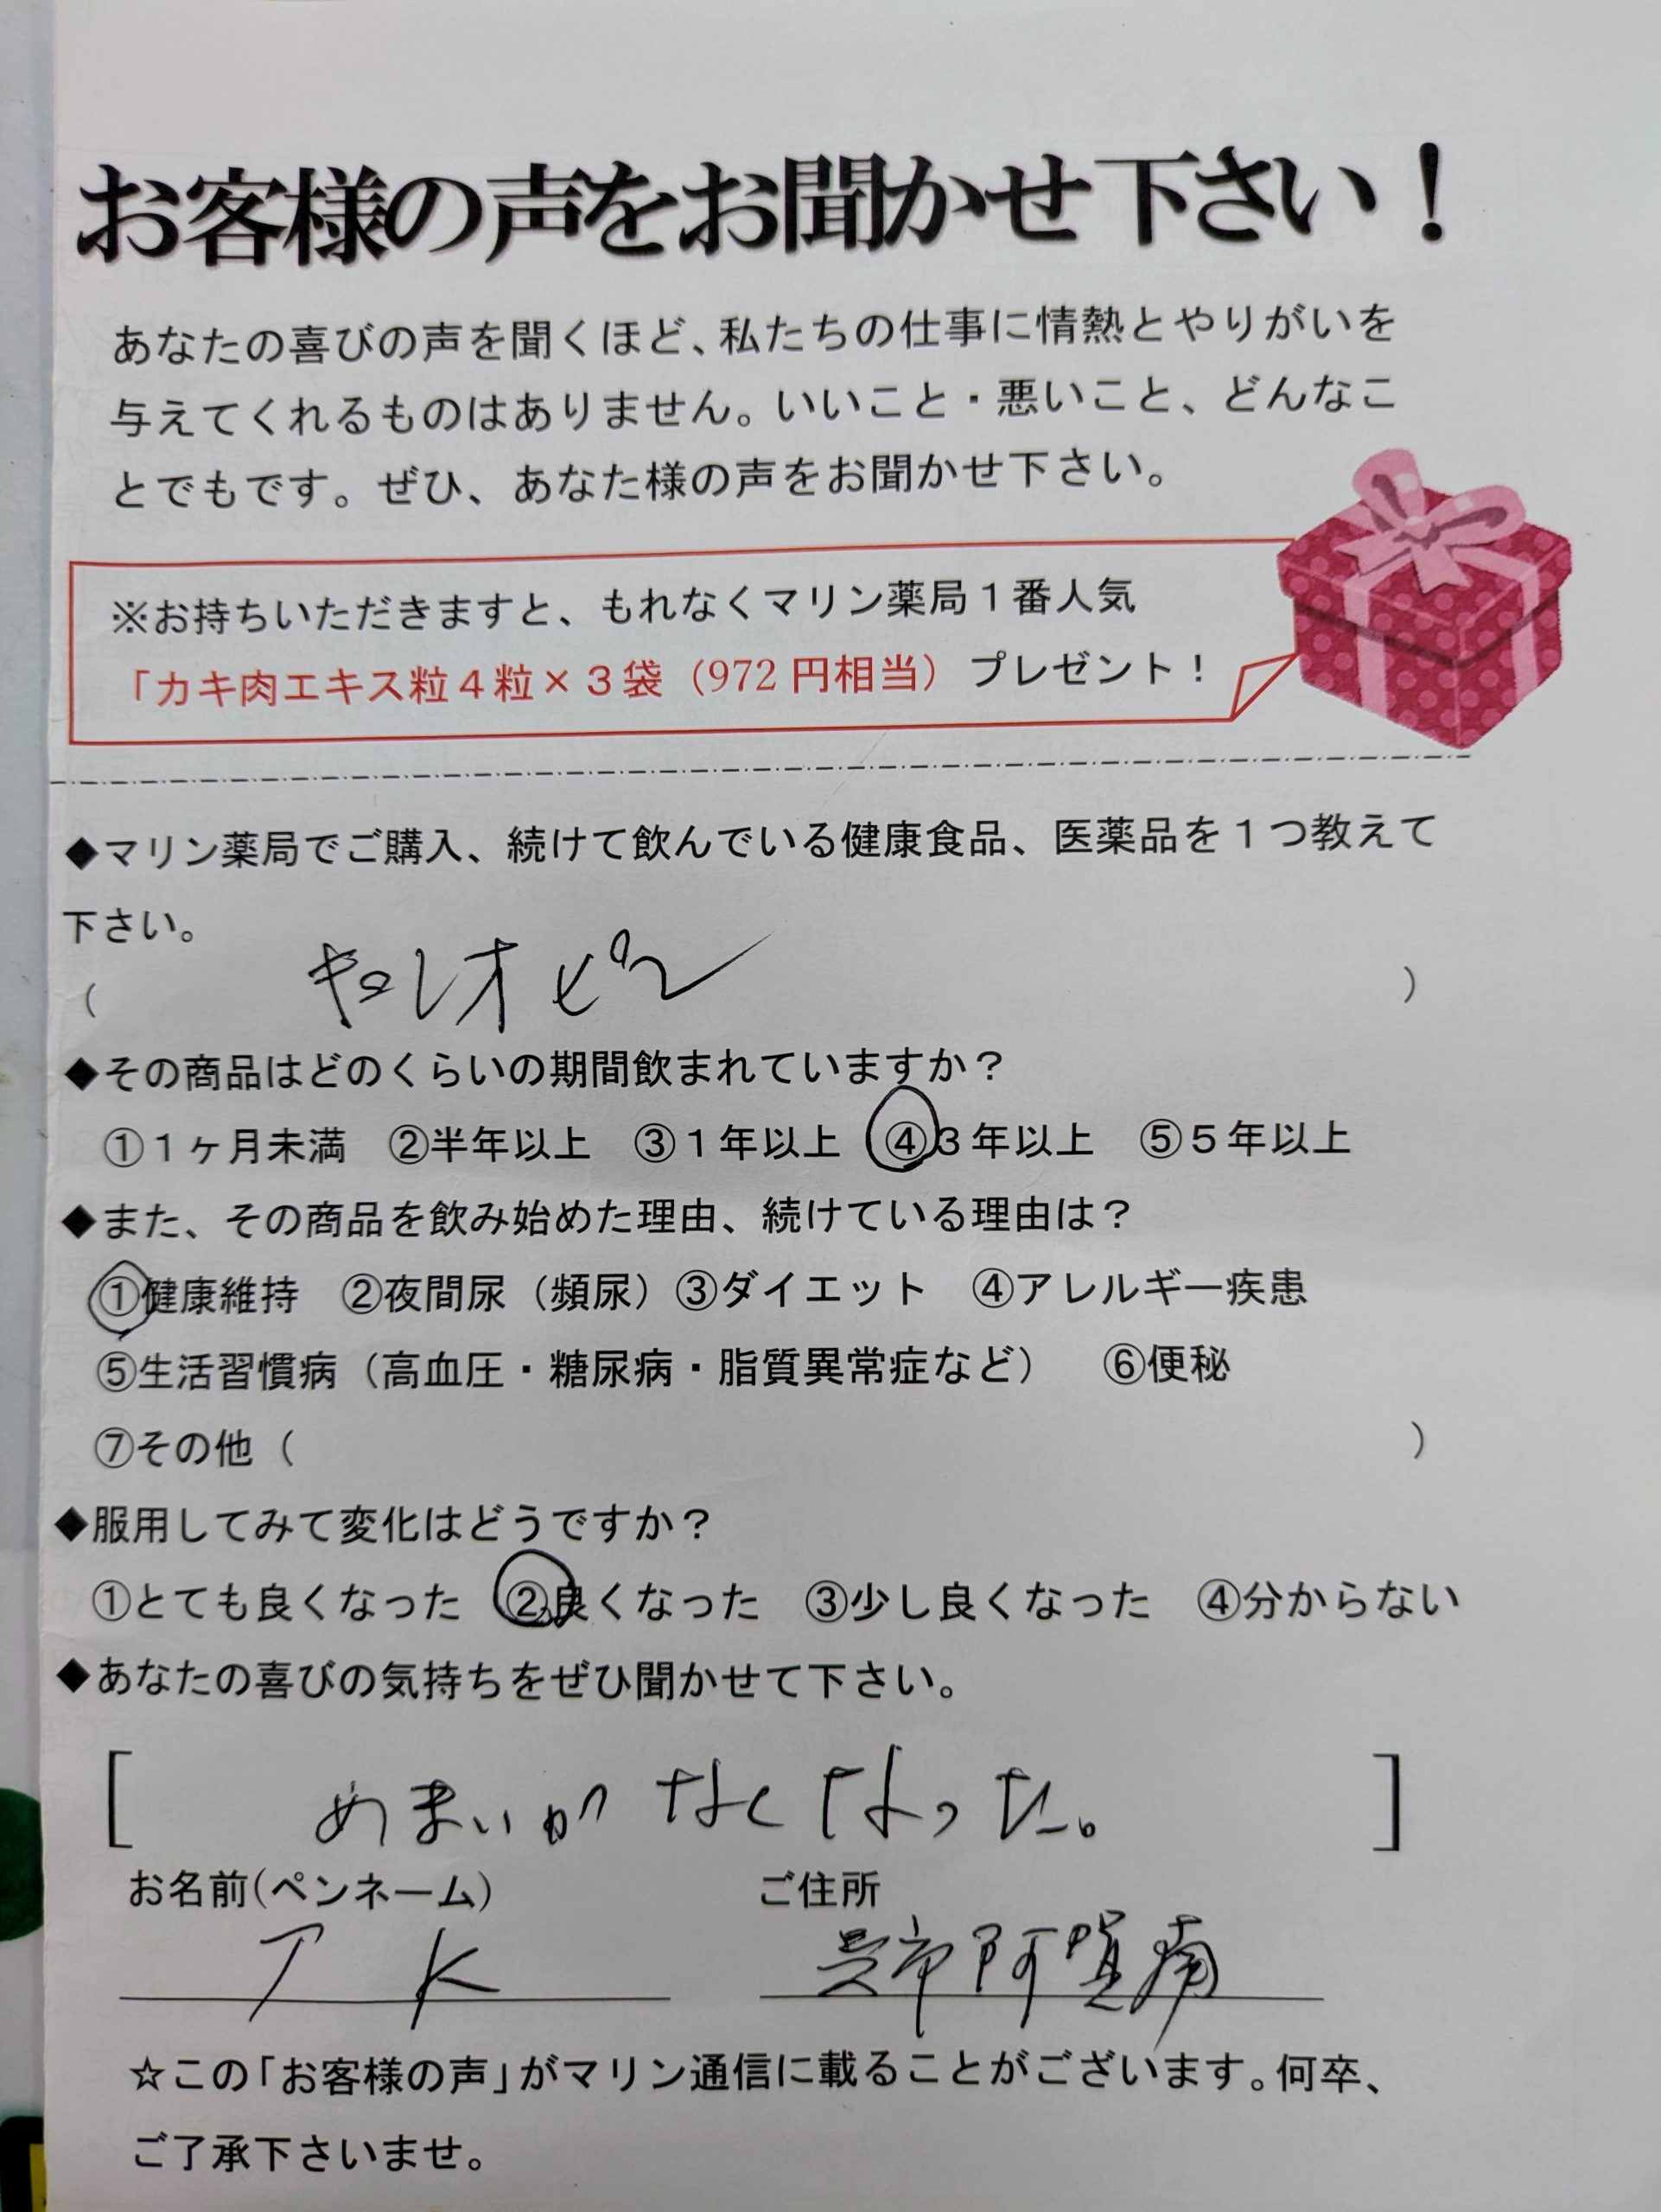 お客様の声をお聞かせ下さい！
あなたの喜びの声を聞くほど、私たちの仕事に情熱とやりがいを
与えてくれるものはありません。いいこと・悪いこと、どんなこ
とでもです。ぜひ、あなた様の声をお聞かせ下さい。
※お持ちいただきますと、もれなくマリン薬局１番人気
「カキ肉エキス粒４粒×３袋（972円相当） プレゼント！
◆マリン薬局でご購入、続けて飲んでいる健康食品、医薬品を１つ教えて
下さい。
（ キョレオピン ）
◆その商品はどのくらいの期間飲まれていますか？
①１ヶ月未満 ②半年以上 ③１年以上 ④３年以上 ⑤５年以上
◆また、その商品を飲み始めた理由、続けている理由は？
①健康維持 ②夜間尿（頻尿）③ダイエット ④アレルギー疾患
⑤生活習慣病（高血圧・糖尿病・脂質異常症など） ⑥便秘
⑦その他（ ）
◆服用してみて変化はどうですか？
①とても良くなった ②良くなった ③少し良くなった ④分からない
◆あなたの喜びの気持ちをぜひ聞かせて下さい。
[ めまいがなくなった。 ]
お名前(ペンネーム) ご住所
K 呉市阿賀南
☆この「お客様の声」がマリン通信に載ることがございます。何卒、
ご了承下さいませ。